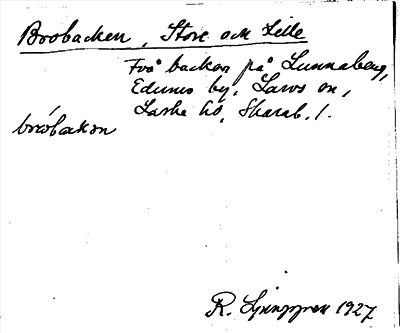 Brobacken, Store och Lille
Två backar på Lunnaberg,
Edums by, Larvs sn,
Laske hd, Skarab. l.
bróbakən
R. Ljunggren 1927